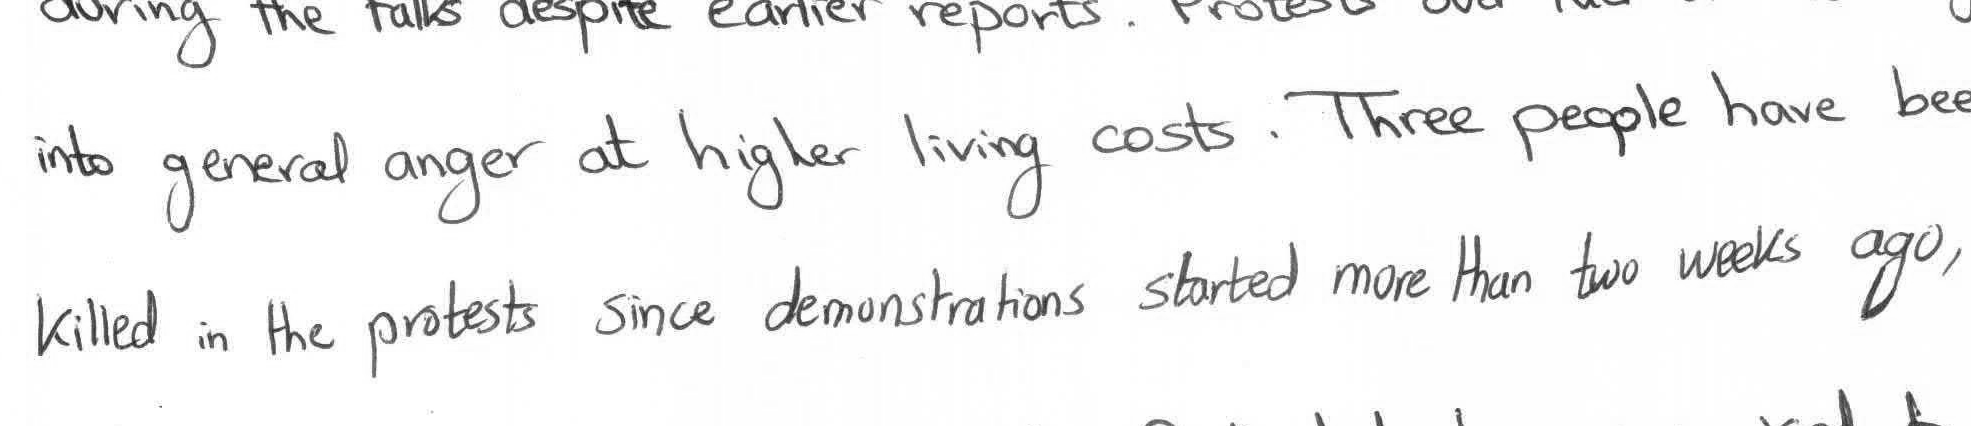 during the talks despite earlier reports. Protests
into general anger at higher living costs. Three people have bee
killed in the protests since demonstrations started more than two weeks ago,